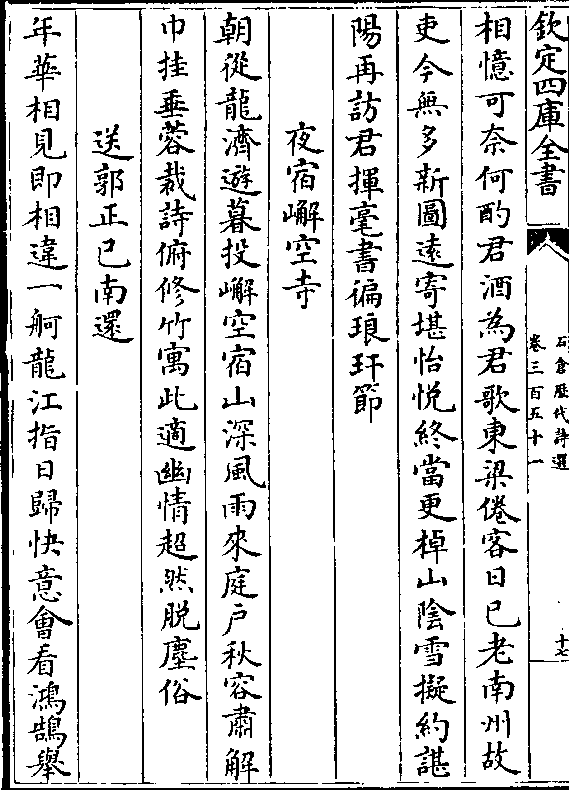 欽定四庫全書
石倉歷代詩選
卷三百五十一
十七
相憶可奈何酌君酒為君歌東梁倦客日已老南州故
吏今無多新圖遠寄堪怡悅終當更棹山陰雪擬約諶
陽再訪君揮毫書徧琅玕節
夜宿嶰空寺
朝從龍濟遊暮投嶰空宿山深風雨來庭戶秋容肅解
巾挂垂蓉裁詩俯修竹寓此適幽情超然脫塵俗
送郭正已南還
年華相見即相違一舸龍江指日歸快意會看鴻鵠舉